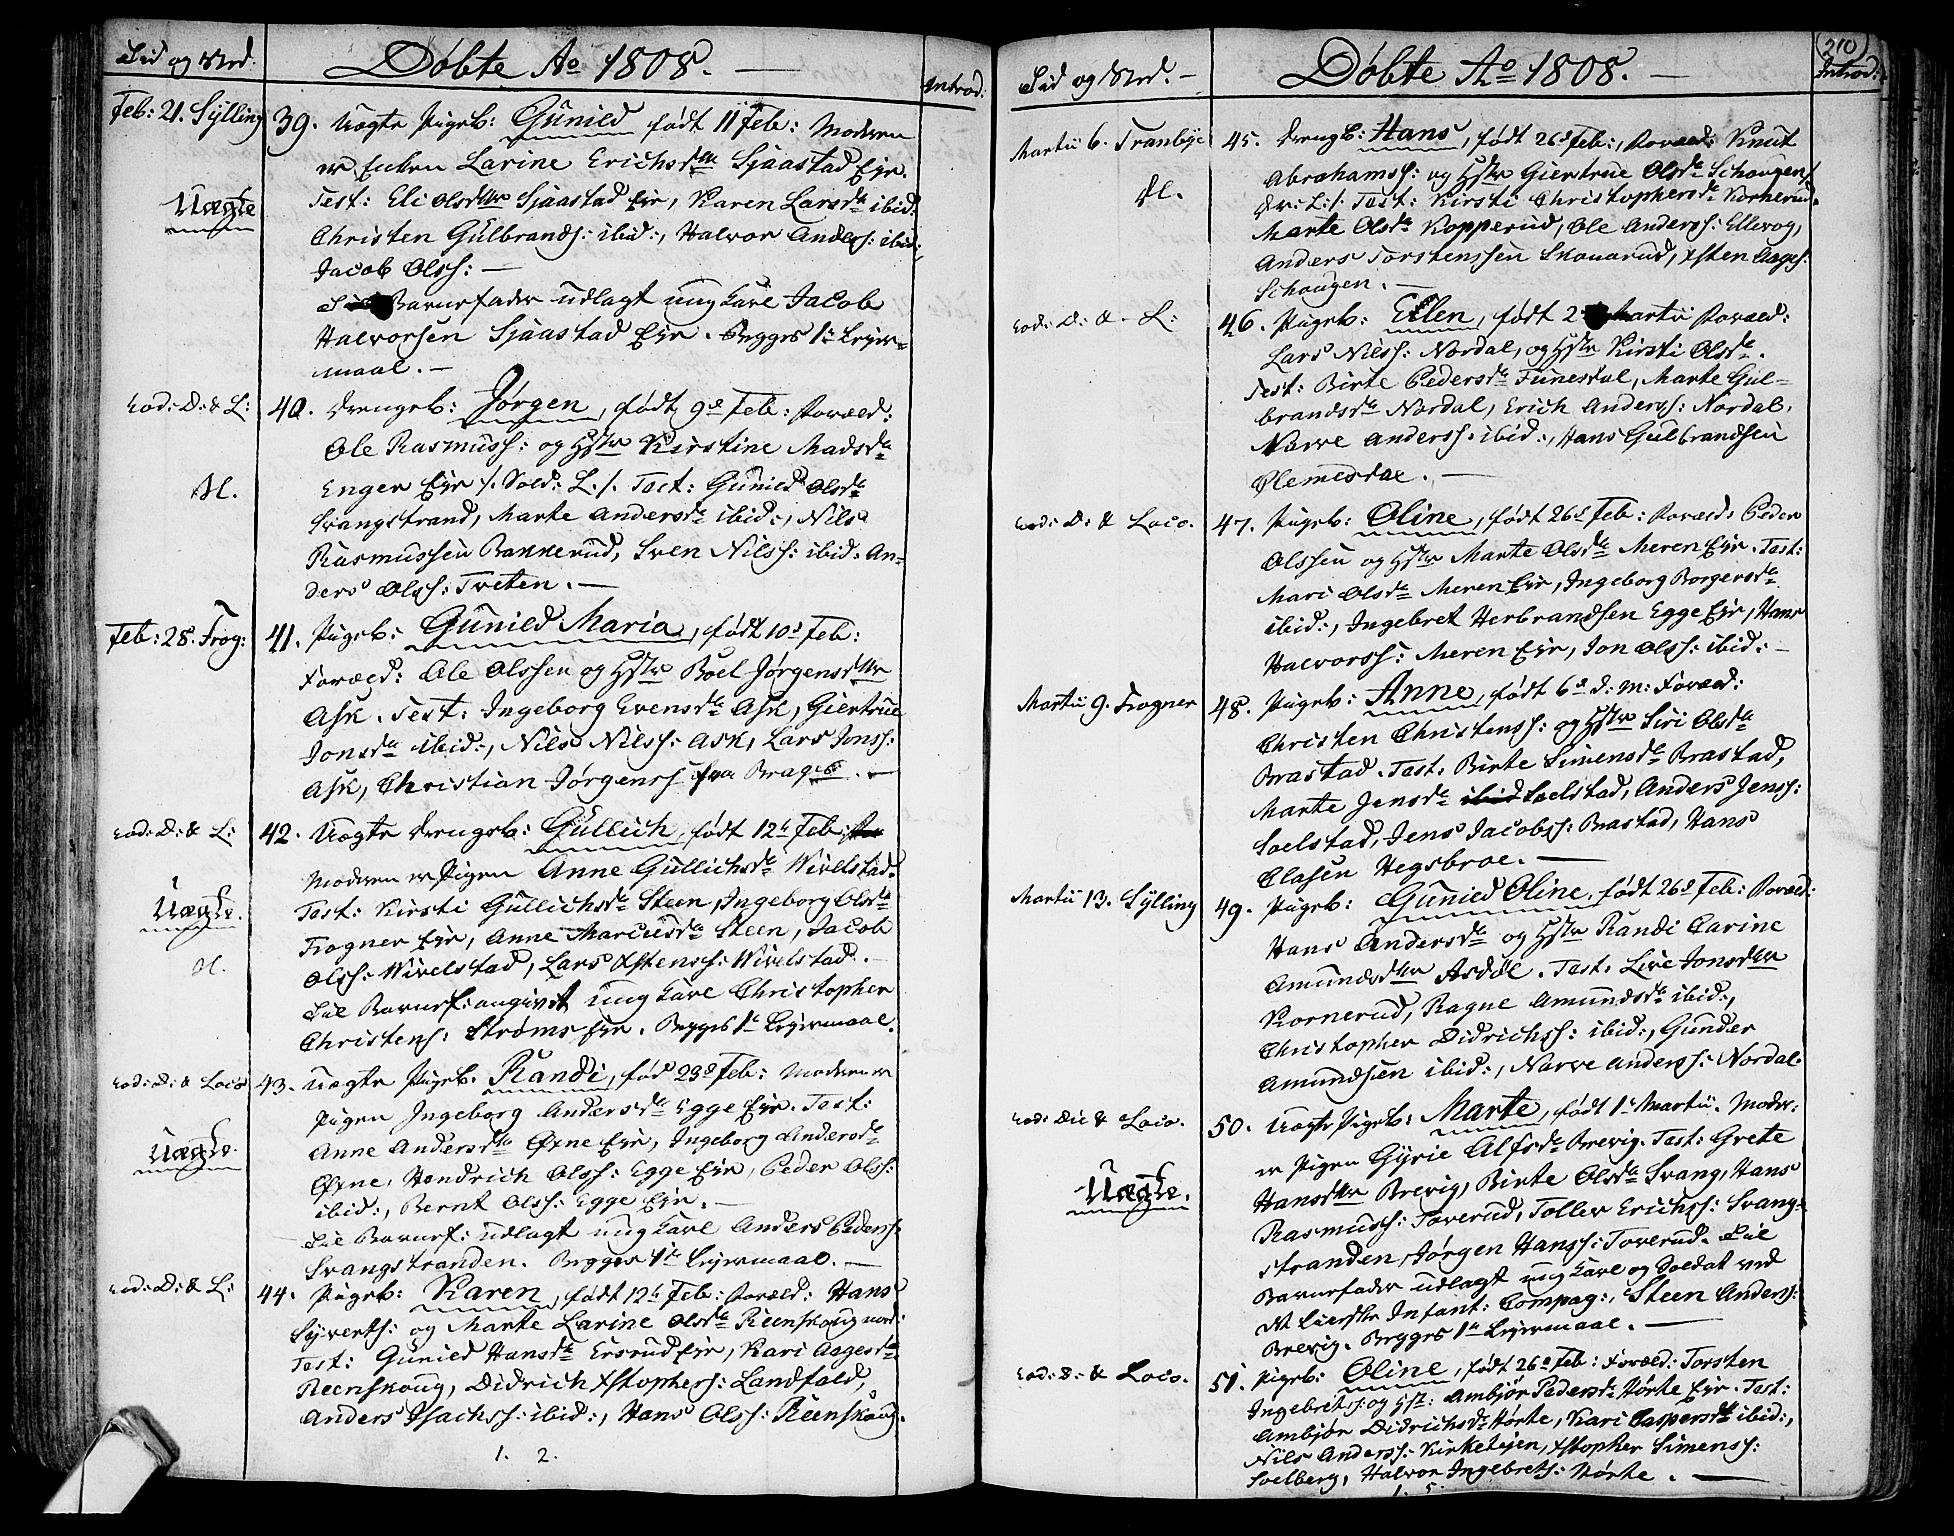 Tid og Sted.
Døbte Ao 1808.
Introd:
Feb: 21. Sylling
39. Uægte Pigeb: Gunild født 11 Feb: Moderen
er Enken Larine Erichsdttr Sjaastad Eje.
Uægte
Test: Eli Olsdttr Sjaastad Eje, Karen Larsdr ibid:
Christen Gulbrands: ibid:, Halvor Anders: ibid:,
Jacob Olss: —
Barnefader udlagt ungkarl Jacob
Halvorsen Sjaastad Eje. Begges 1te Lejer=
maal. —
eod: D: & L:
40. Drengeb: Jørgen, født 9de Feb: Foræld:
Ole Rasmuss: og Hstr Kirstine Madsdr
Enger Eje /. Sold: L./. Test: Gunild Olsdr
Svangstrand, Marte Andersdr ibid:, Nils
Rasmussen Bakkerud, Sven Nilss: ibid: An=
ders Olss: Treten. —
Feb: 28. Frog:
41. Pigeb: Gunild Maria, født 10de Feb:
Foræld: Ole Olssen og Hstr Boel Jørgensdttr
Ask. Test: Ingeborg Evensdr Ask, Giertrue
Jonsdr ibid:, Nils Nilss: Ask, Lars Jonss:
Ask, Christian Jørgenss fra Brages. —
eod: D: & L:
42. Uægte Drengeb: Gullich, født 12te Feb:
Moderen er Pigen Anne Gullichsdr Wivelstad.
Uægte.
Test: Kirsti Gullichsdr Steen, Ingeborg Olsdr
Frogner Eje, Anne Marcusdr Steen, Jacob
Olss: Wivelstad, Lars Xstenss: Wivelstad. —
Til Barnef: angivet ungkarl Christopher
Christens: Strøms Eje. Begges 1te Lejermaal.
eod: D: & Loco
43. Uægte Pigeb. Randi, fød 23de Feb: Moderen er
Pigen Ingeborg Andersdr Egge Eje. Test:
Uægte.
Anne Andersdtr Øxne Eje, Ingeborg Andersdr
Øxne, Hendrich Olss: Egge Eje, Peder Olss:
ibid:, Bernt Olss: Egge Eje. —
Til Barnef: udlagt ungkarl Anders Peders:
Svangstranden. Begges 1te Lejermaal. —
eod: D: & L:
44. Pigeb: Karen, født 12te Feb: Foræld: Hans
Syverts: og Marte Larine Olsdr Reenskoug nord:
Test: Gunild Hansdr Ersrud Eje, Kari Aagesdr
Reenskoug, Didrich Xstophers: Landfald,
Anders Isachss: ibid:, Hans Olss: Reenskoug.
1. 2.
210
Tid og Sted. —
Døbte Ao 1808. —
Introd:
Martii 6. Tranbye
45. Drengb: Hans, født 26de Feb:, Foræld: Knut
Abrahamss: og Hstr Giertrue Olsdr Schougen/
Test: Kirsti Christophersdr Kornerud.
Marte Olsdr Kopperud, Ole Anderss: Ellevog,
Anders Torstenssen Skouarud, Xsten Aages:
Schougen. —
eod: D: & L:
46. Pigeb: Ellen, født 2 Martii Foræld:
Lars Nilss: Nordal, og Hstr Kirsti Olsdr.
Test: Birte Pedersdr Funesdal, Marte Gul=
brandsdr Nordal, Erich Anderss: Nordal,
Narve Anderss. ibid:, Hans Gulbrandsen
Flemesdal. —
eod: D: & Loco.
47. Pigeb: Oline, født 26de Feb: Foræld: Peder
Olssen og Hstr Marte Olsdr Meren Eje. Test:
Mari Olsdr Meren Eje, Ingeborg Borgersdr
ibid:, Ingebret Herbrandsen Egge Eje, Hans
Halvorss: Meren Eje, Jon Olss: ibid: —
Martii 9. Frogner
48. Pigeb: Anne, født 6de d: M: Foræld:
Christen Christenss: og Hstr Siri Olsdr
Brastad. Test: Birte Simensdr Brastad,
Marte Jensdr Soelstad, Anders Jenss:
Soelstad, Jens Jacobss: Brastad, Hans
Clasen Hegsbroe. —
Martii 13. Sylling
49. Pigeb: Gunild Oline, født 26de Feb: Foræld:
Hans Andersdr og Hstr Randi Carine
Amundsdttr Asdøl. Test: Live Jonsdttr
Kornerud, Ragne Amundsdr ibid:,
Christopher Didrichss: ibid:, Gunder
Amundsen ibid:, Narve Anderss: Nordal.
eod: Die & Loco.
50. Uægte Pigeb: Marte, født 1te Martii. Moder:
er Pigen Gyrie Alfsdr Brevig. Test: Grete
Uægte.
Hansdttr Brevig, Birte Olsdr Svang, Hans
Rasmuss: Toverud, Tollev Erichss: Svang=
stranden, Jørgen Hanss: Toverud. Til
Barnefader udlagt ungkarl og Soldat ved
N. Lierske Infant: Compag:, Steen Anders:
Brevig. Begges 1te Lejermaal. —
eod: D: & Loco.
51. Pigeb: Oline, født 26de Feb: Foræld: Torsten
Ingebrets: og Hst: Ambjør Pedersdr Hørte Eje. Test:
Ambjør Didrichsdr Hørte, Kari Caspersdtr ibid:,
Nils Anderss: Kirkelejen, Xstopher Simenss:
Soelberg, Halvor Ingebrets: Hørte. —
1. 5.